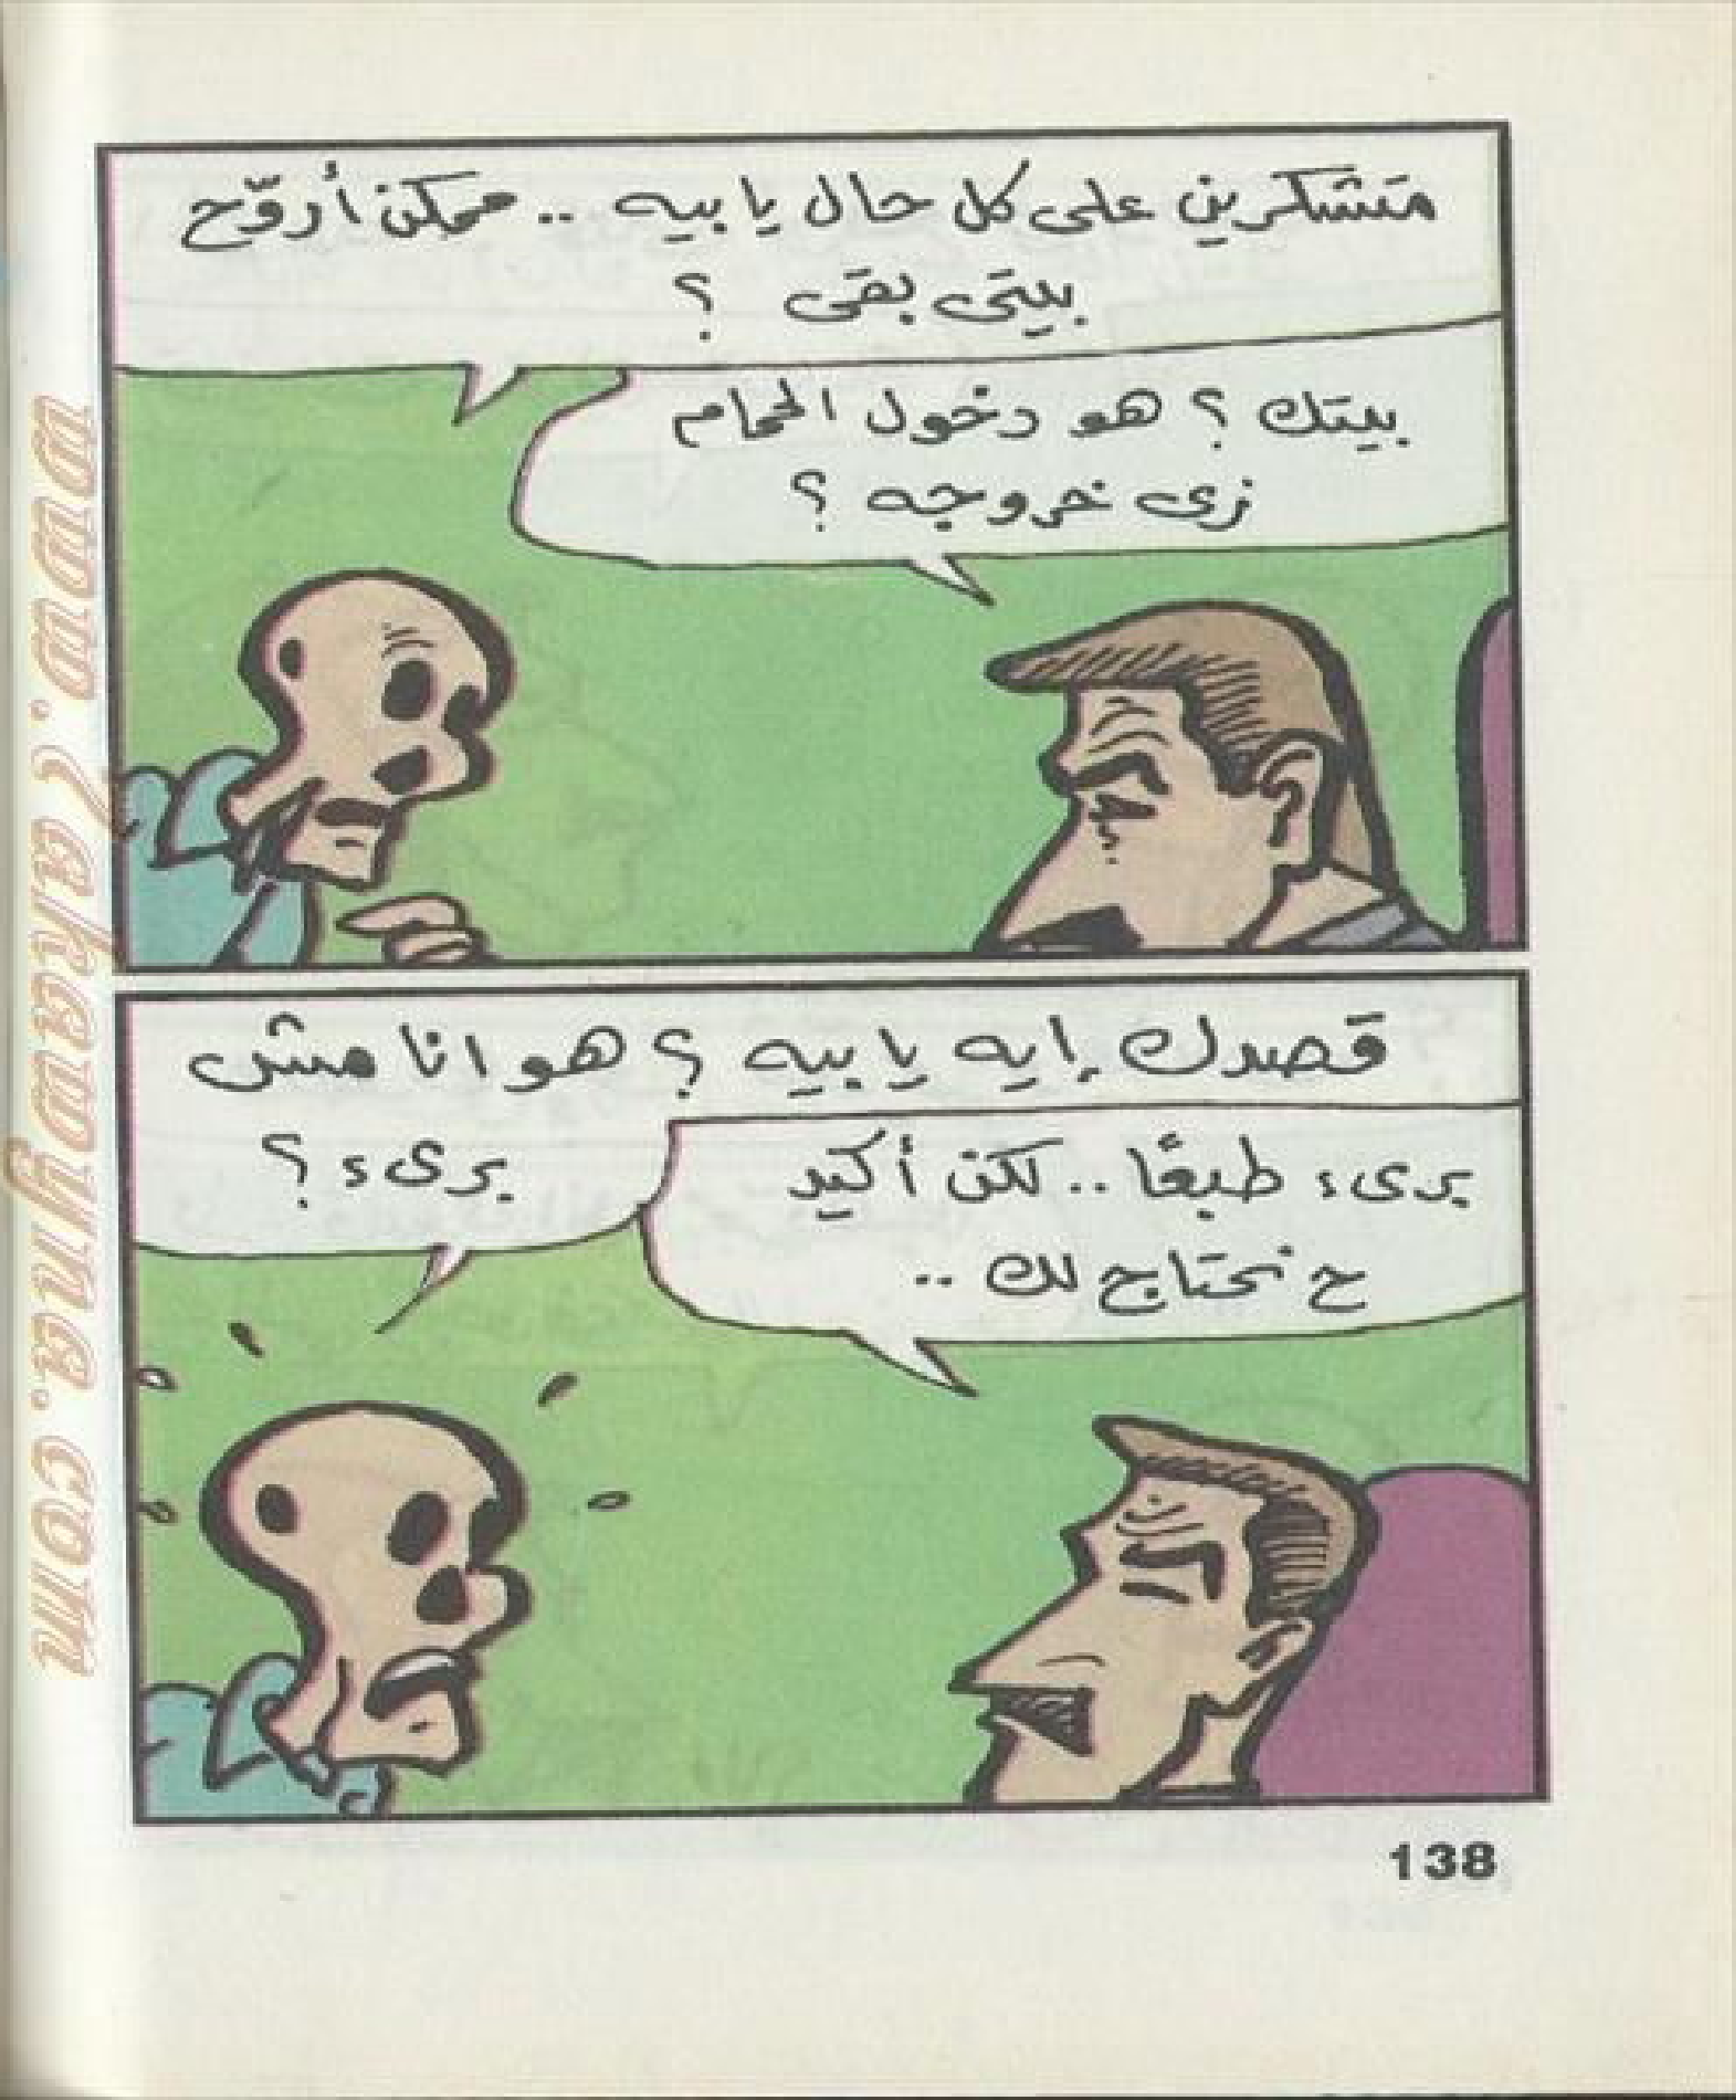 متشكرين على كل حال يا بيه .. ممكن أروّح
بيتى بقى ؟
بيتك ؟ هو دخول الحمام
زى خروجه ؟
قصدك إيه يا بيه ؟ هو انا مش
برىء ؟
برىء طبعًا .. لكن أكيد
ح نحتاج لك ..
138
www.rakaayna.com